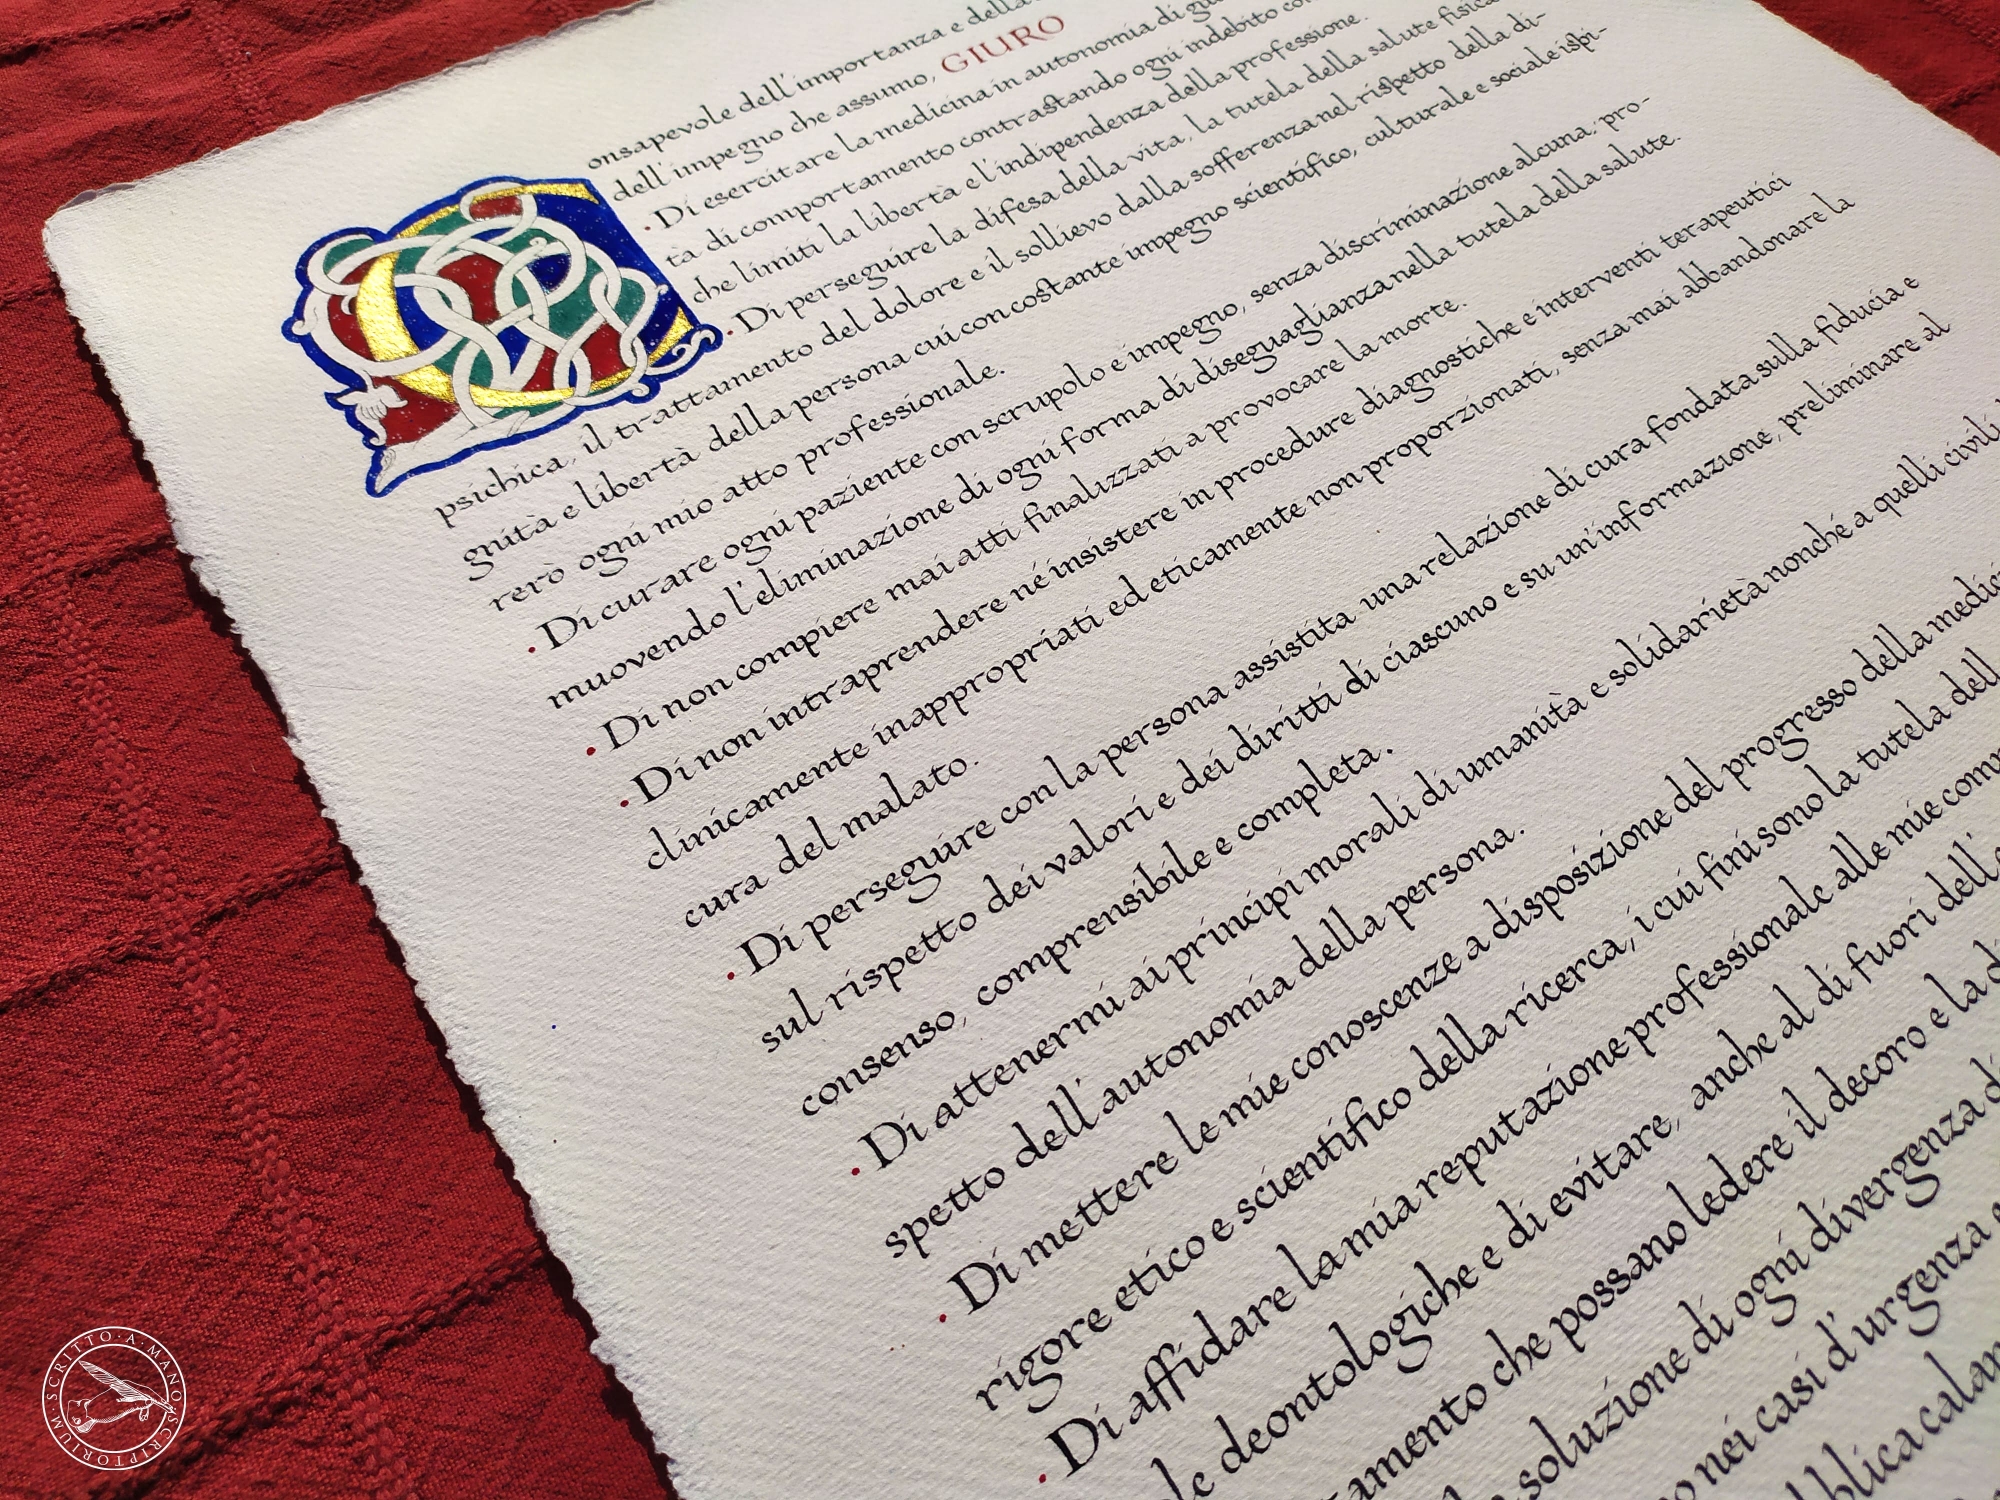 onsapevole dell'importanza e della
dell'impegno che assumo, GIURO
· Di esercitare la medicina in autonomia di
tà di comportamento contrastando ogni indebito
che limiti la libertà e l'indipendenza della professione.
· Di perseguire la difesa della vita, la tutela della salute fisica
psichica, il trattamento del dolore e il sollievo dalla sofferenza nel rispetto della di-
gnità e libertà della persona cui con costante impegno scientifico, culturale e sociale ispi-
rerò ogni mio atto professionale.
· Di curare ogni paziente con scrupolo e impegno, senza discriminazione alcuna, pro-
muovendo l'eliminazione di ogni forma di diseguaglianza nella tutela della salute.
· Di non compiere mai atti finalizzati a provocare la morte.
· Di non intraprendere né insistere in procedure diagnostiche e interventi terapeutici
clinicamente inappropriati ed eticamente non proporzionati, senza mai abbandonare la
cura del malato.
· Di perseguire con la persona assistita una relazione di cura fondata sulla fiducia e
sul rispetto dei valori e dei diritti di ciascuno e su un'informazione, preliminare al
consenso, comprensibile e completa.
· Di attenermi ai principi morali di umanità e solidarietà nonché a quelli civili
spetto dell'autonomia della persona.
· Di mettere le mie conoscenze a disposizione del progresso della
rigore etico e scientifico della ricerca, i cui fini sono la tutela
· Di affidare la mia reputazione professionale alle mie
deontologiche e di evitare, anche al di fuori dell'
che possano ledere il decoro e la
soluzione di ogni divergenza
nei casi d'urgenza
SCRITTO · A · MANO · SCRIPTORIUM ·